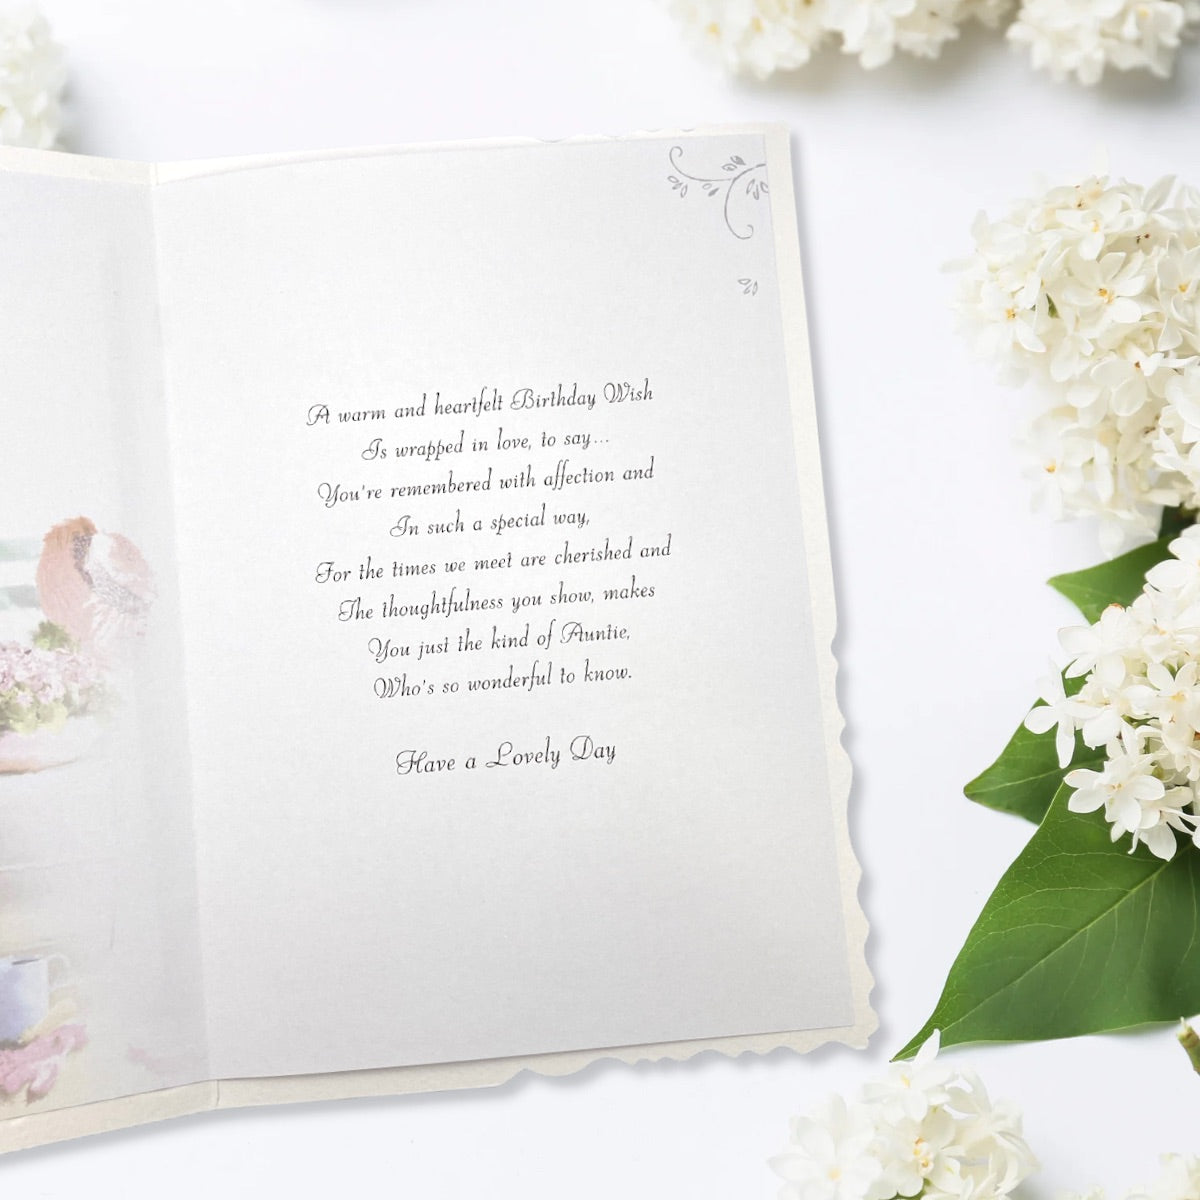 A warm and heartfelt Birthday Wish
Is wrapped in love, to say...
You're remembered with affection and
In such a special way,
For the times we meet are cherished and
The thoughtfulness you show, makes
You just the kind of Auntie,
Who's so wonderful to know.
Have a Lovely Day